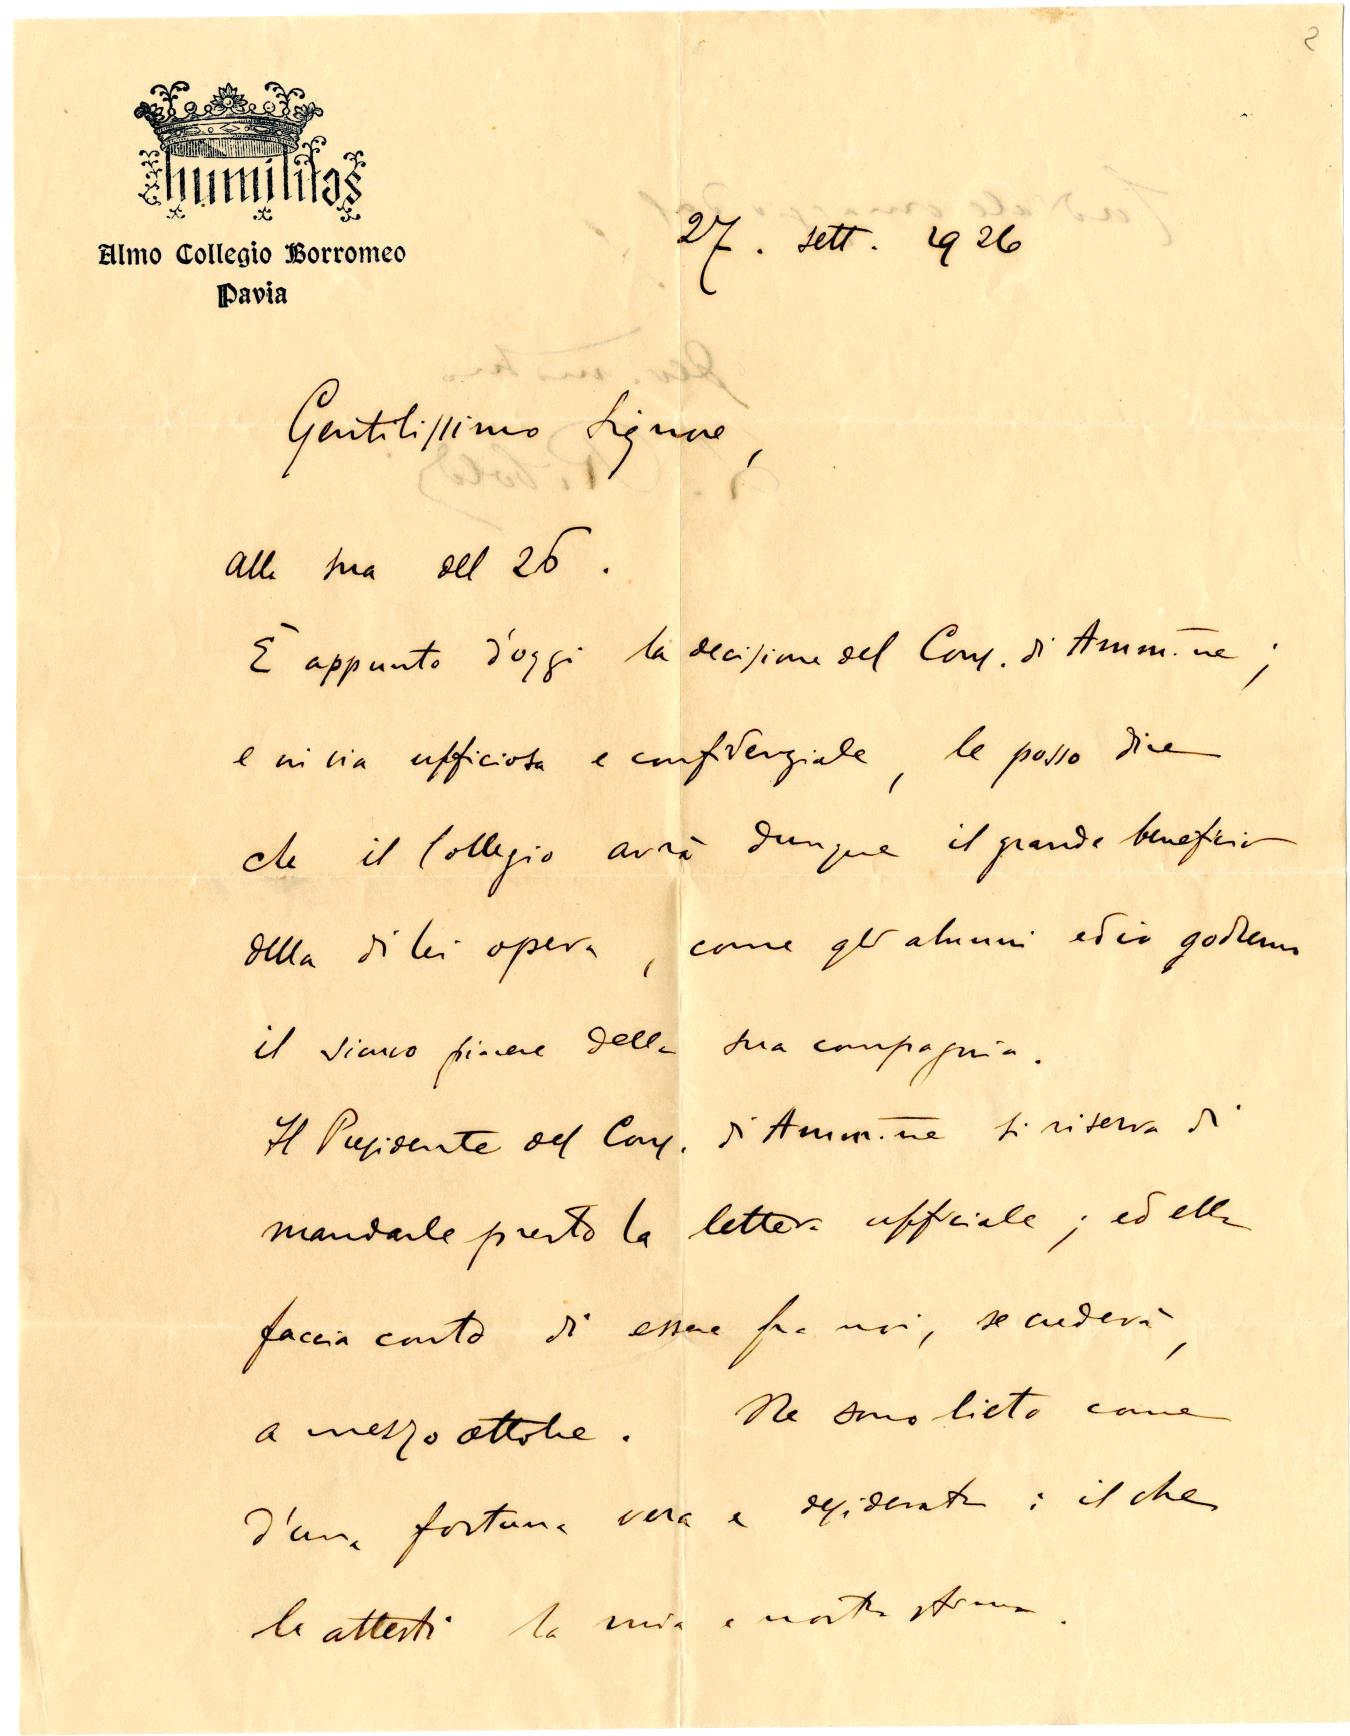 2
humilitas
Almo Collegio Borromeo
Pavia
27. sett. 1926
Gentilissimo Signore,
alla sua del 26.
È appunto d'oggi la decisione del Cons. di Amm.ne;
e in via ufficiosa e confidenziale, le posso dire
che il Collegio avrà dunque il grande beneficio
della di lei opera, come gli alunni ed io godremo
il sicuro piacere della sua compagnia.
Il Presidente del Cons. di Amm.ne si riserva di
mandarle presto la lettera ufficiale; ed ella
faccia conto di essere fra noi, se crederà,
a mezzo ottobre. Ne sono lieto come
d'una fortuna vera e desiderata: il che
le attesti la mia e nostra stima.